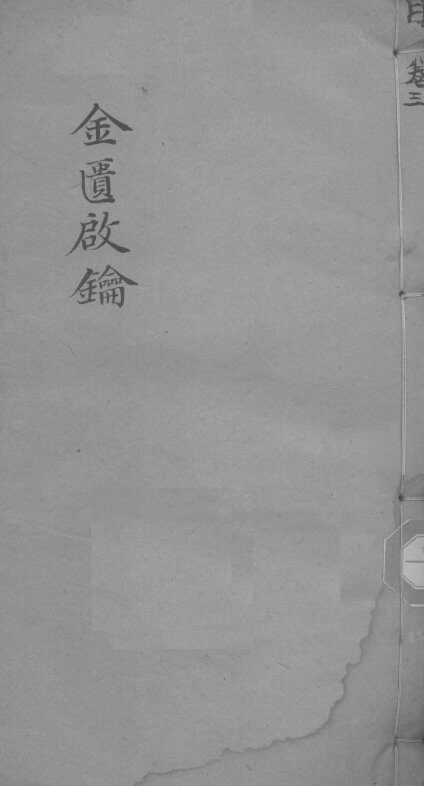 卷三
金匱啟鑰